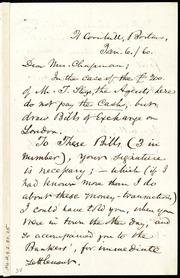 21 Cornhill, Boston,
Jan. 6. / 60.
Dear Mrs. Chapman;
In the case of the £200.
of Mr. T. Sturge, the Agents here
do not pay the Cash, but
draw Bills of Exchange on
London.
To These Bills (3 in
number), your signature
is necessary; – which (if I
had known more than I do
about these money-transactions)
I could have told you, when you
were in town the other day; and
so accompanied you to the
Bankers', for immediate
settlement.